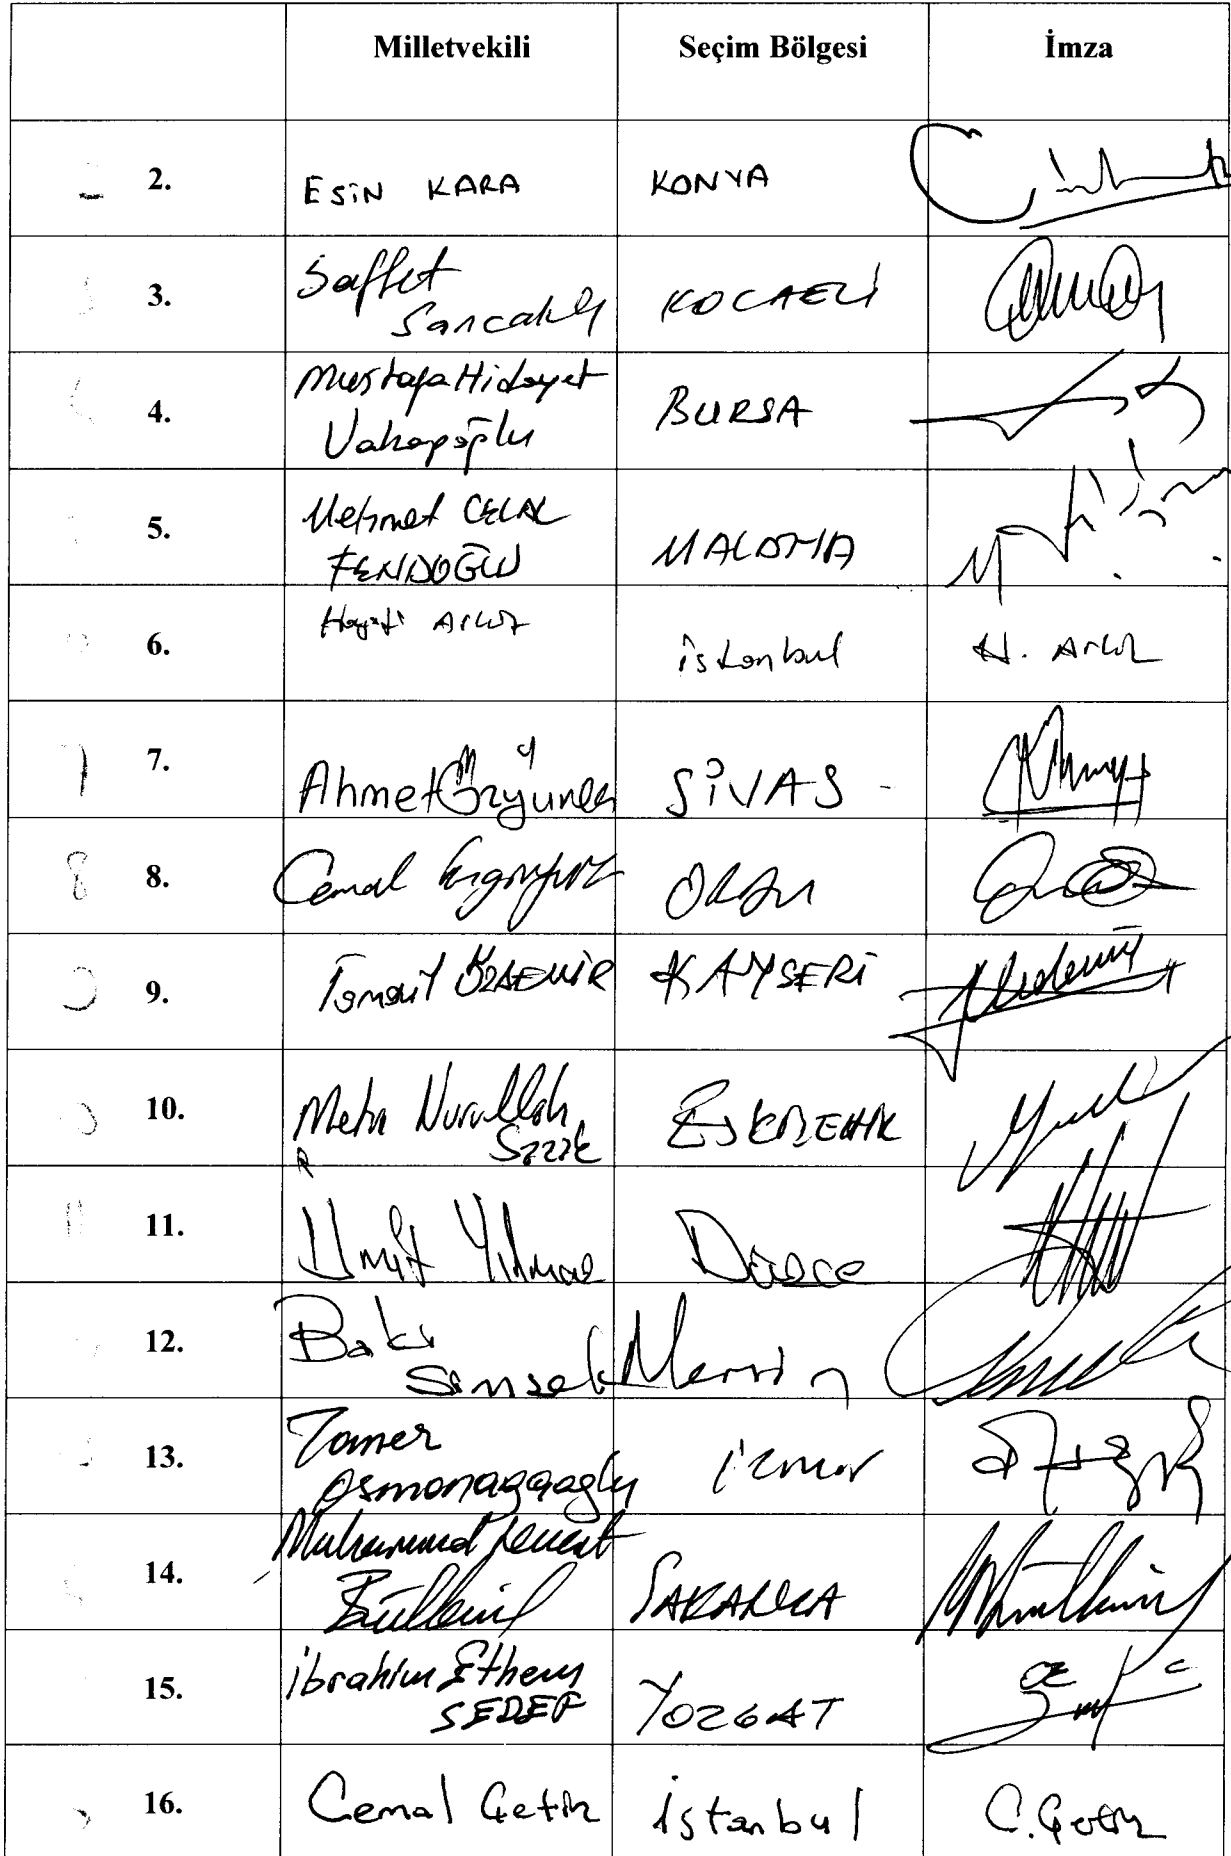 Milletvekili Seçim Bölgesi İmza
2. ESİN KARA KONYA
3. Saffet
Sancaklı KOCAELİ
4. Mustafa Hidayet
Vahapoğlu BURSA
5. Mehmet CELAL
FENDOĞLU MALATYA
6. Hayati Arkaz istanbul H. Arkaz
7. Ahmet Özyürek SİVAS
8. Cemal Enginyurt ORDU
9. İsmail ÖZDEMİR KAYSERİ
10. Metin Nurullah
Sazak ESKİŞEHİR
11. Ümit Yılmaz Düzce
12. Baki
Şimşek Mersin
13. Tamer
Osmanağaoğlu izmir
14. Muhammed Levent
Bülbül SAKARYA
15. İbrahim Ethem
SEDEF YOZGAT
16. Cemal Çetin İstanbul C. Çetin